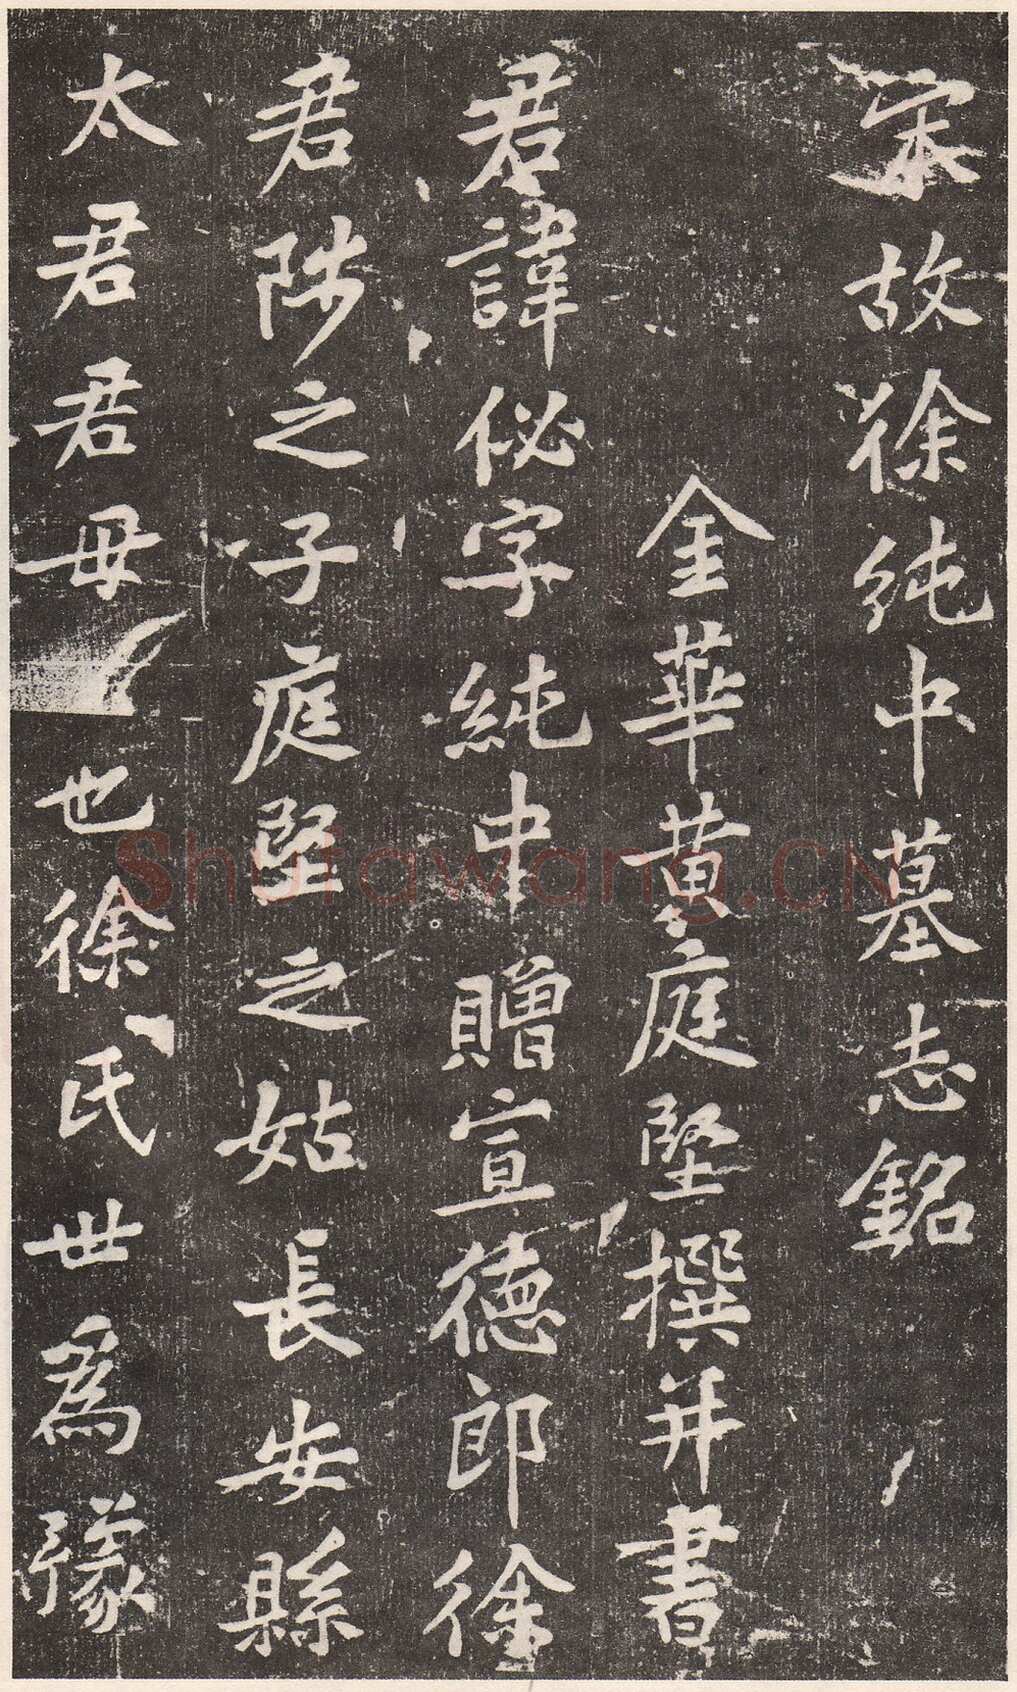 宋故徐純中墓志銘
金華黃庭堅撰并書
君諱佖字純中贈宣德郎徐
君陟之子庭堅之姑長安縣
太君君母也徐氏世爲豫
Shufawang.CN